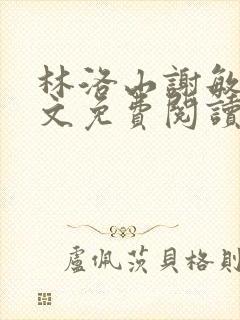 林洛山謝敏
文免費閱讀
盧佩茨貝格則